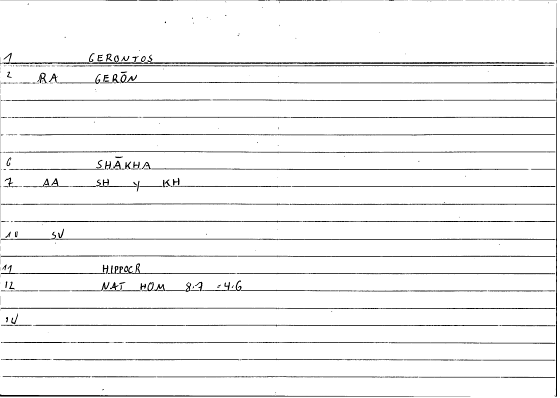 1 GERONTOS
2 RA GERŌN
6 SHĀKHA
7 AA SH Y KH
10 SV
11 HIPPOCR
12 NAT HOM 8.7 = 4.6